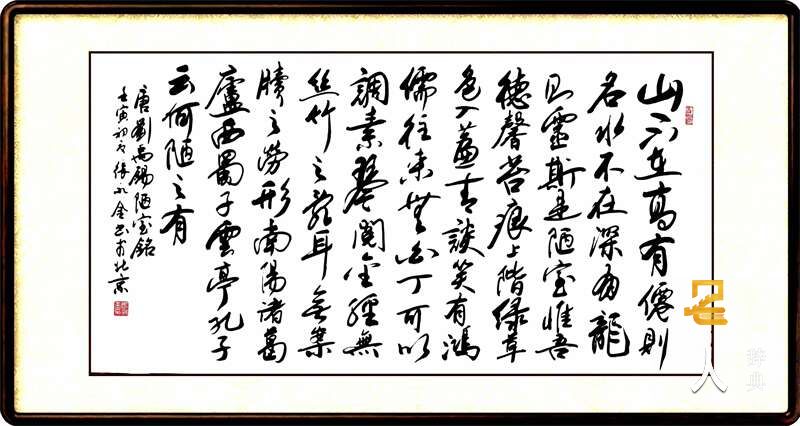 山不在高有僊則
名水不在深有龍
则靈斯是陋室惟吾
德馨苔痕上階绿草
色入簾青談笑有鴻
儒往来無白丁可以
調素琴閱金經無
丝竹之乱耳無案
牘之勞形南陽諸葛
廬西蜀子雲亭孔子
云何陋之有
唐劉禹錫陋室銘
壬寅初夏張金书于北京
名人
辞典